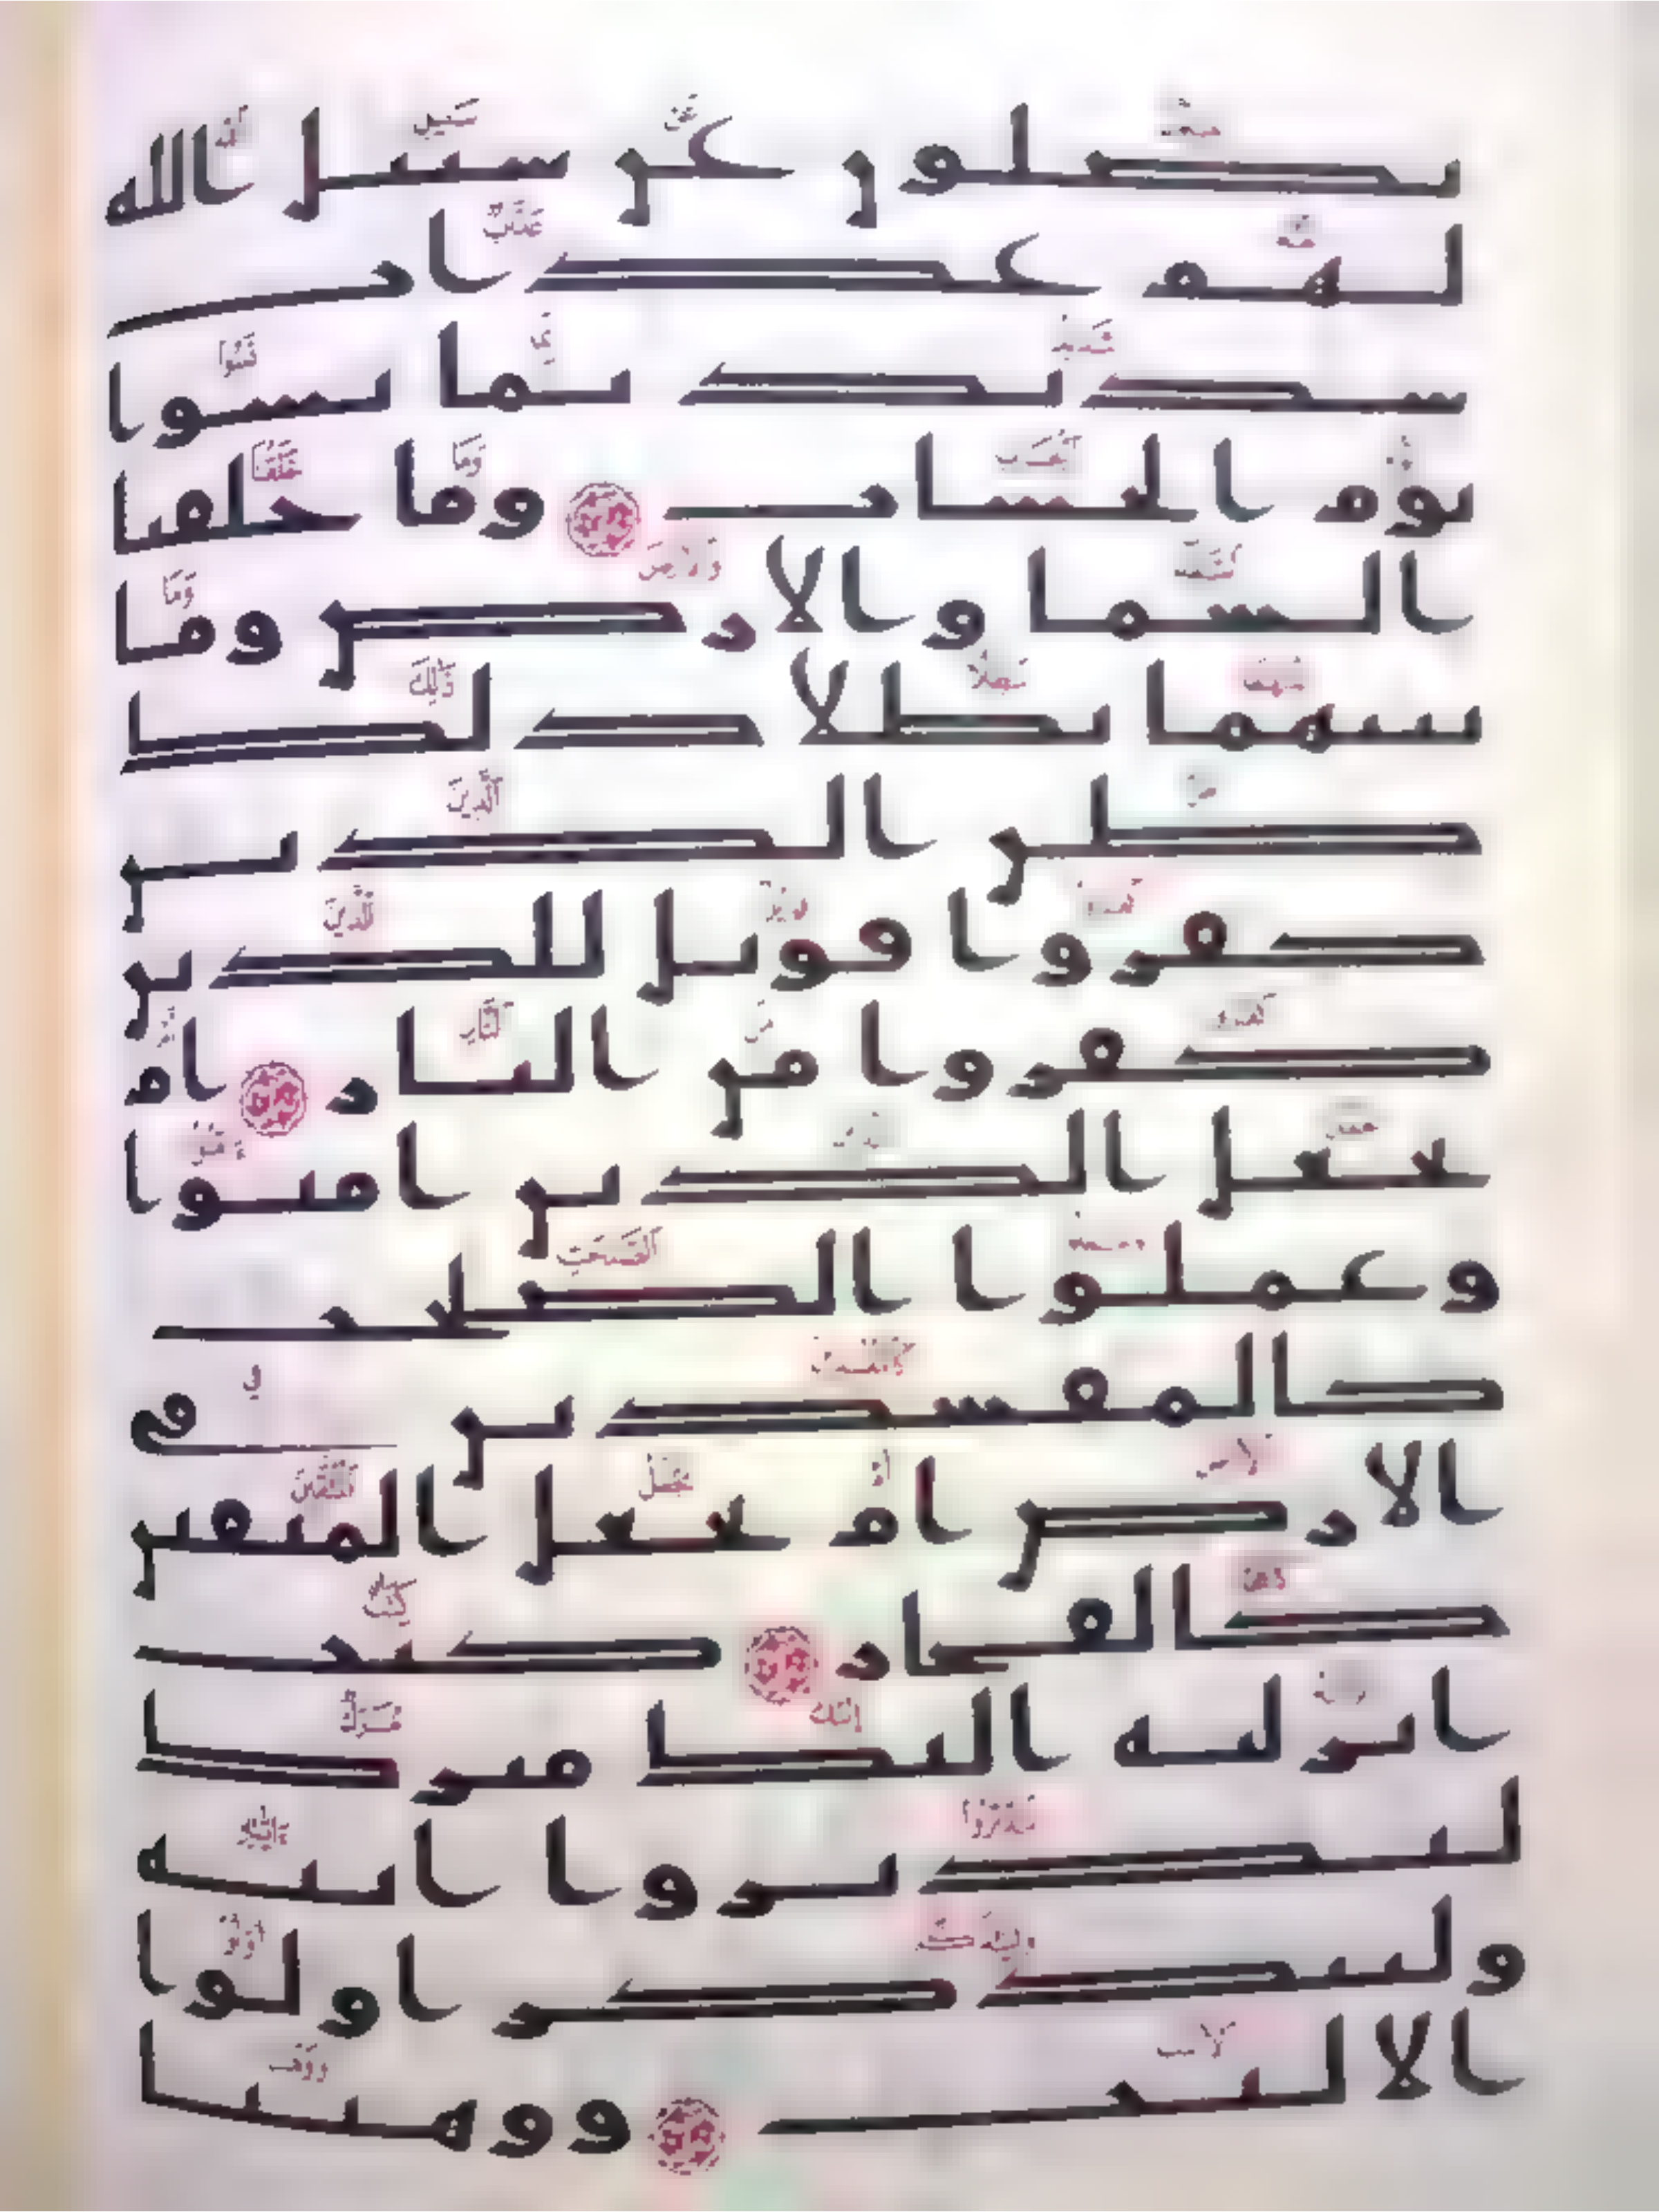 يضلون عن سبيل الله
لهم عذاب
شديد بما نسوا
يوم الحساب وما خلقنا
السما والارض وما
بينهما بطلا ذلك
ظن الذين
كفروا فويل للذين
كفروا من النار ام
نجعل الذين امنوا
وعملوا الصلحت
كالمفسدين في
الارض ام نجعل المتقين
كالفجار كتب
انزلنه اليك مبرك
ليدبروا ايته
وليتذكر اولوا
الالبب ووهبنا